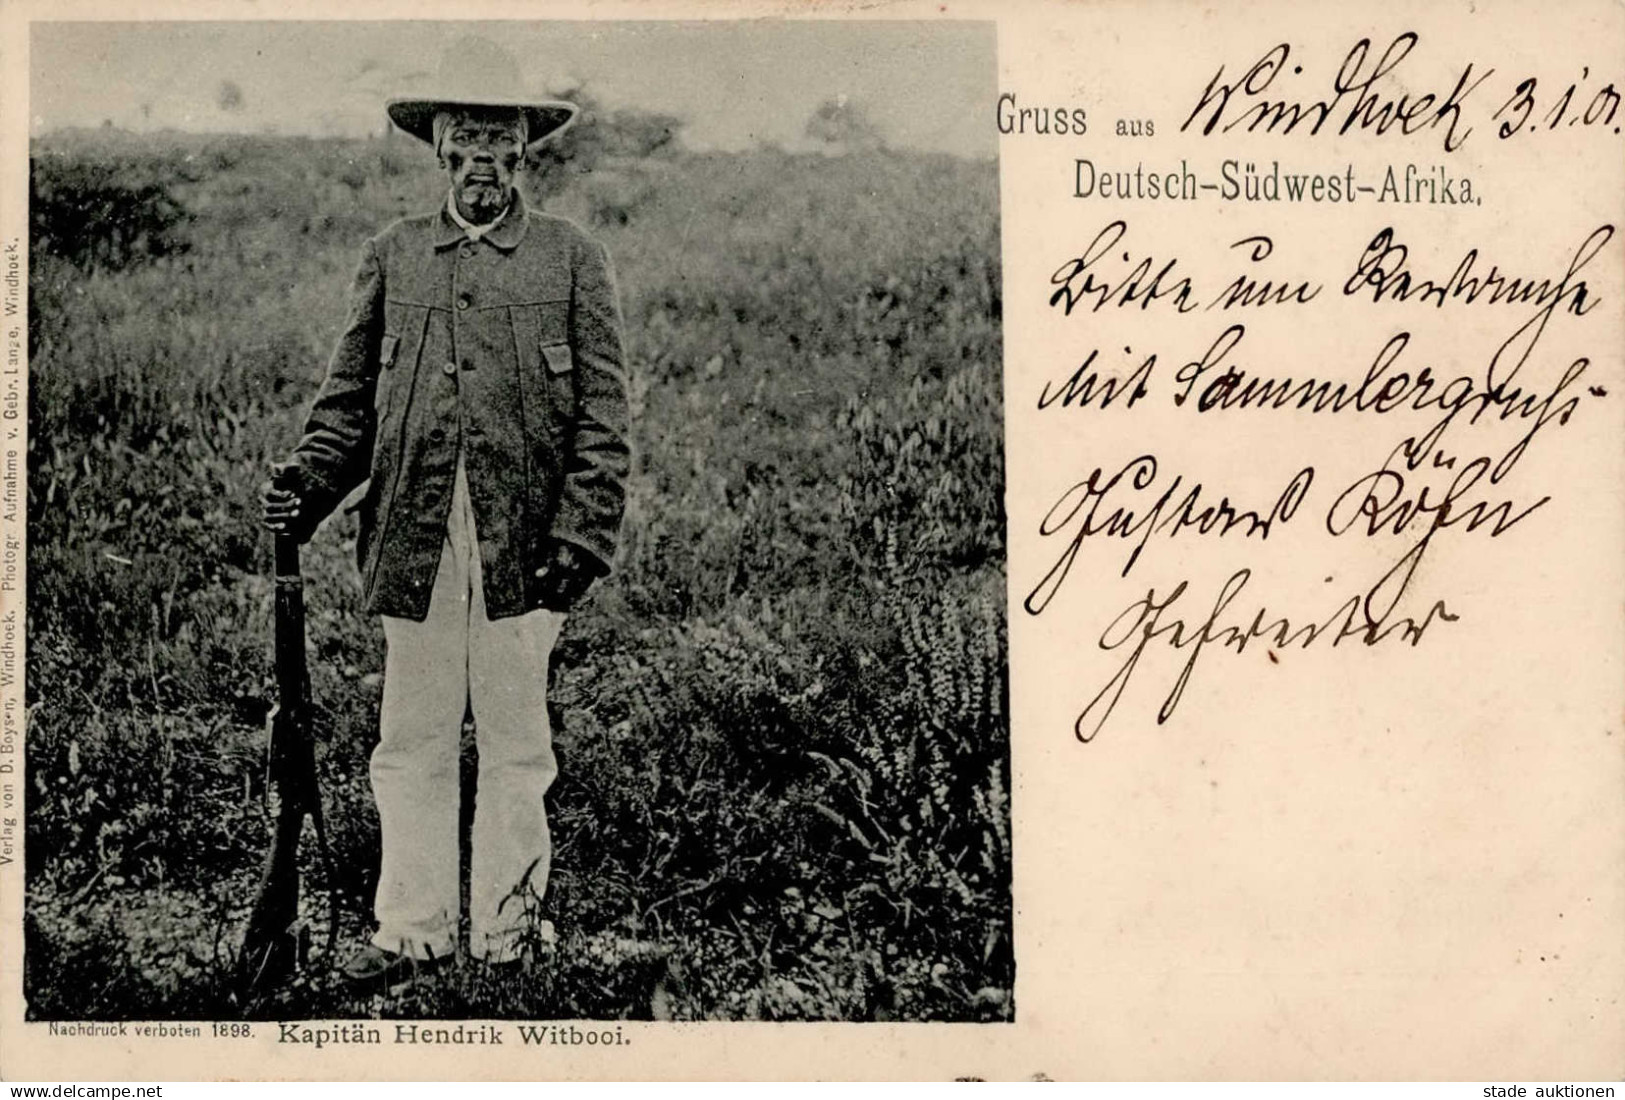 Gruss aus Windhoek, 3.1.01.
Deutsch-Südwest-Afrika.
Bitte um Revanche
Mit Sammlergruß
Gustav Köhn
Gefreiter
Verlag von D. Boysen, Windhoek. Photogr. Aufnahme v. Gebr. Lange, Windhoek.
Nachdruck verboten 1898. Kapitän Hendrik Witbooi.
www.delcampe.net
stade auktionen